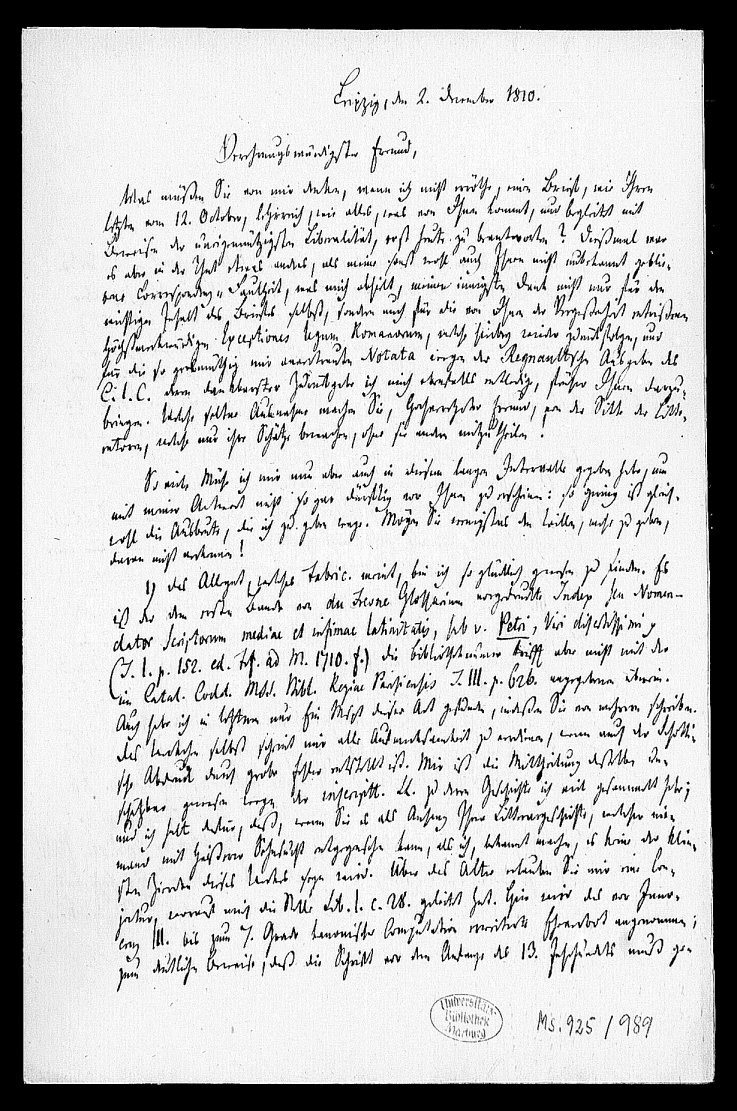 Leipzig, den 2. December 1810.
Verehrungswürdigster Freund,
Was müßen Sie von mir denken, wenn ich nicht erröthe, einen Brief, wie Ihren
letzten vom 12. October, lehrreich, wie alles, was von Ihnen kommt, und begleitet mit
Beweisen der uneigennützigsten Liberalität, erst heute zu beantworten? Dießmal war
es aber in der That etwas anders, als meine sonst wohl auch Ihnen nicht unbekannt geblie-
bene Correspondenz-Faulheit, was mich abhielt, meinen innigsten Dank nicht nur für den
wichtigen Inhalt des Briefes selbst, sondern auch für die von Ihnen der Vergessenheit entrißenen
höchstmerkwürdigen Exceptiones legum Romanorum, welche hierbey wieder zurückfolgen, und
für die so großmüthig mir anvertrauten Notata wegen der Regnaultschen Ausgabe des
C. I. C. deren dankbarster Zurückgabe ich mich ebenfalls entledige, früher Ihnen darzu-
bringen. Welche seltne Ausnahme machen Sie, Hochverehrter Freund, von der Sitte der Litte-
ratoren, welche nur ihre Schätze bewachen, ohne sie andern mitzutheilen!
So viele Mühe ich mir nun aber auch in diesem langen Intervalle gegeben habe, um
mit meiner Antwort nicht so gar dürftig vor Ihnen zu erscheinen: so gering ist gleich-
wohl die Ausbeute, die ich zu geben wage. Mögen Sie wenigstens den Willen, mehr zu geben,
daran nicht verkennen!
1) das Allegat, welches Fabric. meint, bin ich so glücklich gewesen zu finden. Es
ist der dem ersten Bande von du Fresne Glossarium vorgedruckte Index seu Nomen-
clator Scriptorum mediae et infimae latinitatis, sub v. Petri, Viri disertissimi
(T. I. p. 152. ed. Frf. ad M. 1710. f.) die Bibliotheknummer trifft aber nicht mit der
im Catal. Codd. MSS. Bibl. Regiae Parisiensis T. III. p. 626. angegebenen überein.
Auch habe ich in letzterem nur Ein Mspt dieser Art gefunden, indeßen Sie von mehrern schreiben.
das Werkchen selbst scheint mir alle Aufmerksamkeit zu verdienen, wenn auch der Schotti-
sche Abdruck durch grobe Fehler entstellt ist. Mir ist die Mittheilung desselben un-
schätzbar gewesen wegen der inscriptt. LL. zu deren Geschichte ich viel gesammelt habe;
und ich halte dafür, daß, wenn Sie es als Anhang Ihrer Litterargeschichte, welcher nie-
mand mit heißerer Sehnsucht entgegensehen kann, als ich, bekannt machen, es keine der klein-
sten Zierden dieses Werkes seyn wird. Über das Alter erlauben Sie mir eine Con-
jectur, worauf mich die Stelle Lib. I. c. 28. geleitet hat. Hier wird das vor Inno-
cenz III. bis zum 7. Grade kanonischer Computation erweiterte Eheverbot angenommen;
zum deutlichen Beweise, daß die Schrift vor dem Anfange des 13. Jahrhunderts muß ge-
Universitäts-
Bibliothek
Marburg
Ms. 925/989